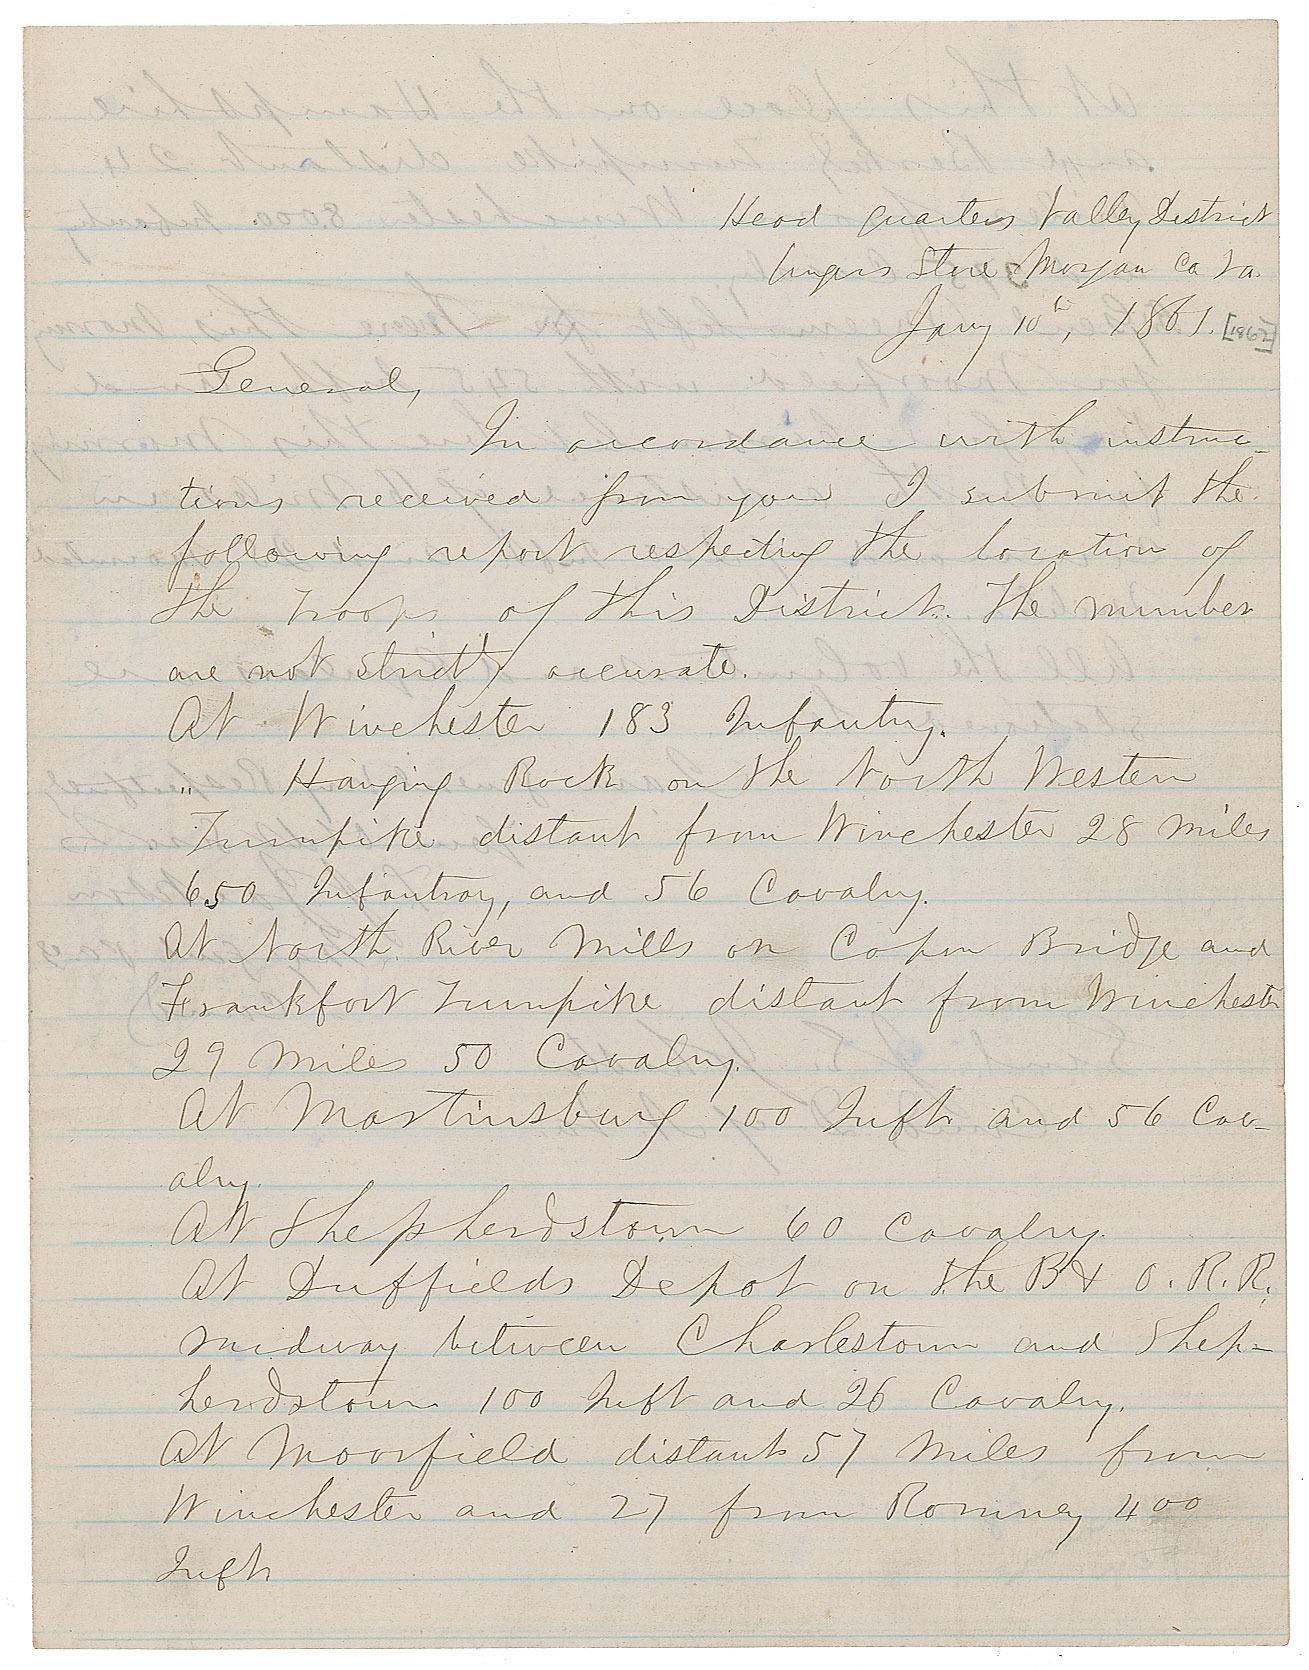 Head quarters Valley District
Ungers Store Morgan Co Va
Jany 10th, 1861. [1862]
General,
In accordance with instruc-
tions received from you I submit the
following report respecting the location of
the troops of this District. The number
are not strictly accurate.
At Winchester 183 Infantry.
" Hanging Rock on the North Western
Turnpike distant from Winchester 28 miles
650 Infantry, and 56 Cavalry.
At North River Mills on Capon Bridge and
Frankfort Turnpike distant from Winchester
29 miles 50 Cavalry.
At Martinsburg 100 Inft and 56 Cav-
alry.
At Shepherdstown 60 Cavalry.
At Duffields Depot on the B & O. R. R.
midway between Charlestown and Shep-
herdstown 100 Inft and 26 Cavalry.
At Moorfield distant 57 miles from
Winchester and 27 from Romney 400
Inft